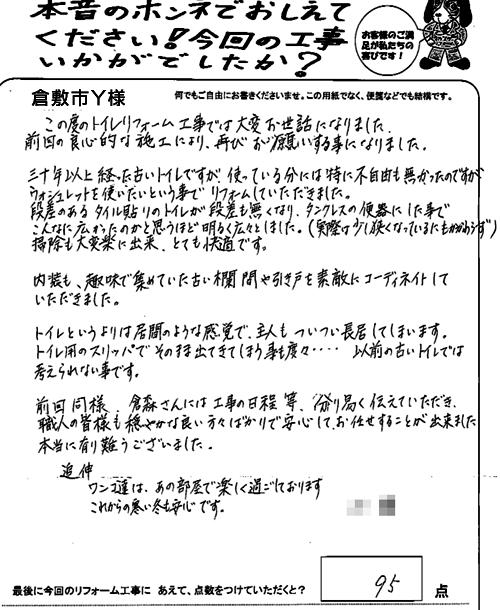 本音のホンネでおしえて
ください!今回の工事
いかがでしたか?
お客様のご満
足が私たちの
喜びです!
倉敷市Y様
何でもご自由にお書きくださいませ。この用紙でなく、便箋などでも結構です。
この度のトイレリフォーム工事では大変お世話になりました。
前回の良心的な施工により、再びお願いする事になりました。
三十年以上経った古いトイレですが、使っている分には特に不自由も無かったのですが
ウォシュレットを使いたいという事でリフォームしていただきました。
段差のあるタイル貼りのトイレが段差も無くなり、タンクレスの便器にした事で
こんなに広かったのかと思うほど明るく広々としました。(実際は少し狭くなっているにもかかわらず)
掃除も大変楽に出来、とても快適です。
内装も、趣味で集めていた古い欄間や引き戸を素敵にコーディネイトして
いただきました。
トイレというよりは居間のような感覚で、主人もついつい長居してしまいます。
トイレ用のスリッパでそのまま出てきてしまう事も度々・・・・ 以前の古いトイレでは
考えられない事です。
前回同様、倉森さんには工事の日程等、分り易く伝えていただき、
職人の皆様も穏やかな良い方々ばかりで安心してお任せすることが出来ました
本当に有り難うございました。
追伸
ワンコ達は、あの部屋で楽しく過ごしております
これからの寒い冬も安心です。
最後に今回のリフォーム工事に あえて、点数をつけていただくと?
95
点